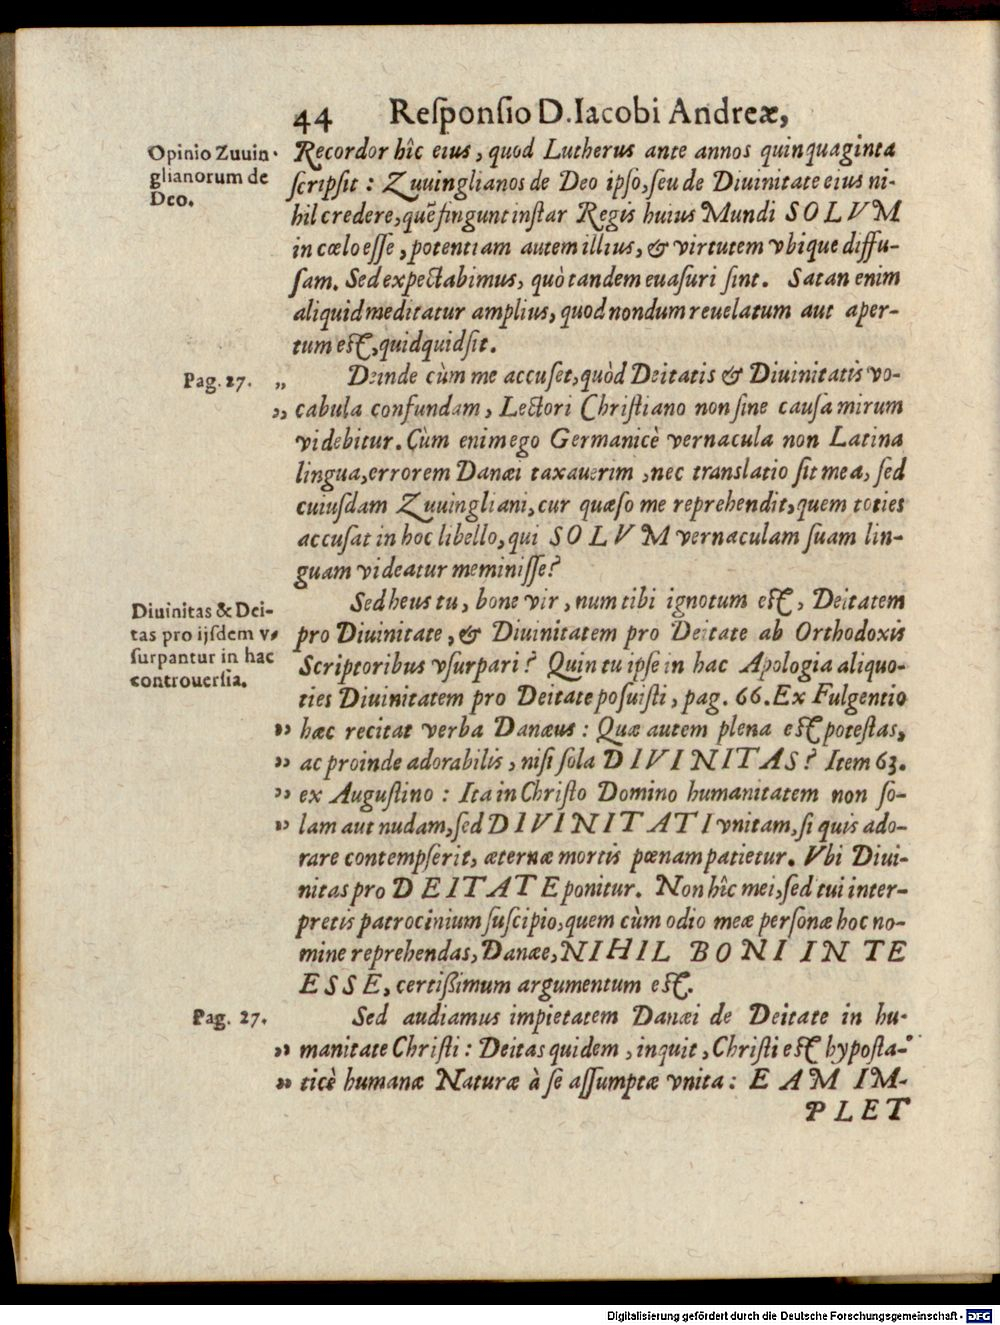 44 Reſponſio D. Iacobi Andreæ,
Opinio Zuuin-
glianorum de
Deo.
Recordor hîc eius, quod Lutherus ante annos quinquaginta
ſcripſit: Zuuinglianos de Deo ipſo, ſeu de Diuinitate eius ni-
hil credere, quē fingunt inſtar Regis huius Mundi SOLVM
in cœlo eſſe, potentiam autem illius, & virtutem vbique diffu-
ſam. Sed expectabimus, quò tandem euaſuri ſint. Satan enim
aliquid meditatur amplius, quod nondum reuelatum aut aper-
tum eſt, quidquid ſit.
Pag. 27.
„ Deinde cùm me accuſet, quòd Deitatis & Diuinitatis vo-
„ cabula confundam, Lectori Chriſtiano non ſine cauſa mirum
videbitur. Cùm enim ego Germanicè vernacula non Latina
lingua, errorem Danæi taxauerim, nec translatio ſit mea, ſed
cuiuſdam Zuuingliani, cur quæſo me reprehendit, quem toties
accuſat in hoc libello, qui SOLVM vernaculam ſuam lin-
guam videatur meminiſſe?
Diuinitas & Dei-
tas pro ijſdem v-
ſurpantur in hac
controuerſia.
Sed heus tu, bone vir, num tibi ignotum eſt, Deitatem
pro Diuinitate, & Diuinitatem pro Deitate ab Orthodoxis
Scriptoribus vſurpari? Quin tu ipſe in hac Apologia aliquo-
ties Diuinitatem pro Deitate poſuiſti, pag. 66. Ex Fulgentio
„ hæc recitat verba Danæus: Quæ autem plena eſt poteſtas,
„ ac proinde adorabilis, niſi ſola DIVINITAS? Item 63.
„ ex Auguſtino: Ita in Chriſto Domino humanitatem non ſo-
„ lam aut nudam, ſed DIVINITATI vnitam, ſi quis ado-
rare contempſerit, æternæ mortis pœnam patietur. Vbi Diui-
nitas pro DEITATE ponitur. Non hîc mei, ſed tui inter-
pretis patrocinium ſuſcipio, quem cùm odio meæ perſonæ hoc no-
mine reprehendas, Danæe, NIHIL BONI IN TE
ESSE, certißimum argumentum eſt.
Pag. 27.
Sed audiamus impietatem Danæi de Deitate in hu-
„ manitate Chriſti: Deitas quidem, inquit, Chriſti eſt hypoſta-
„ ticè humanæ Naturæ à ſe aſſumptæ vnita: EAM IM-
PLET
Digitalisierung gefördert durch die Deutsche Forschungsgemeinschaft - DFG